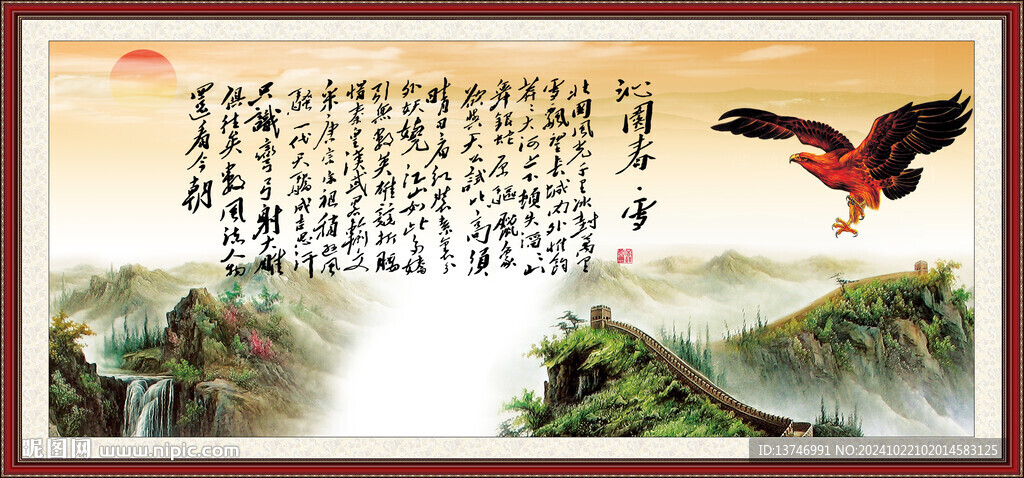 沁園春 雪
北国風光千里冰封萬里
雪飘望長城内外惟餘
莽莽大河上下頓失滔滔山
舞銀蛇原驱臘象
欲與天公試比高須
晴日看红装素裹分
外妖嬈江山如此多嬌
引無數英雄競折腰
惜秦皇漢武略輸文
采唐宗宋祖稍逊風
騷一代天驕成吉思汗
只識彎弓射大雕
俱往矣數風流人物
還看今朝
昵图网 www.nipic.com
ID:13746991 NO:20241022102014583125